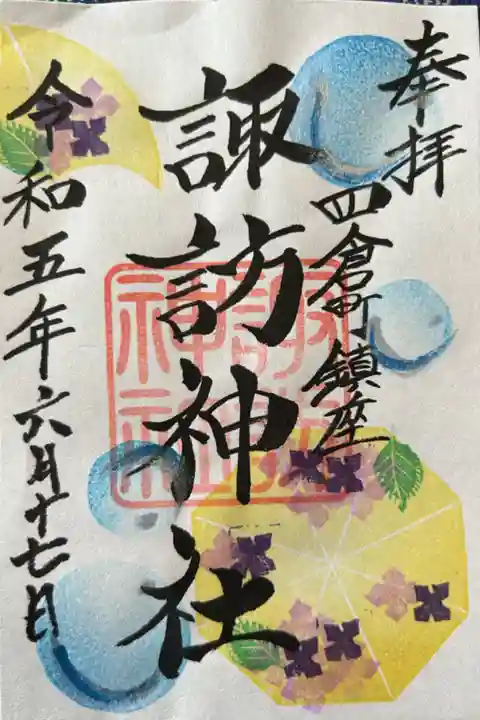 奉拝
四倉町鎮座
諏訪神社
令和五年六月十七日
諏訪神社